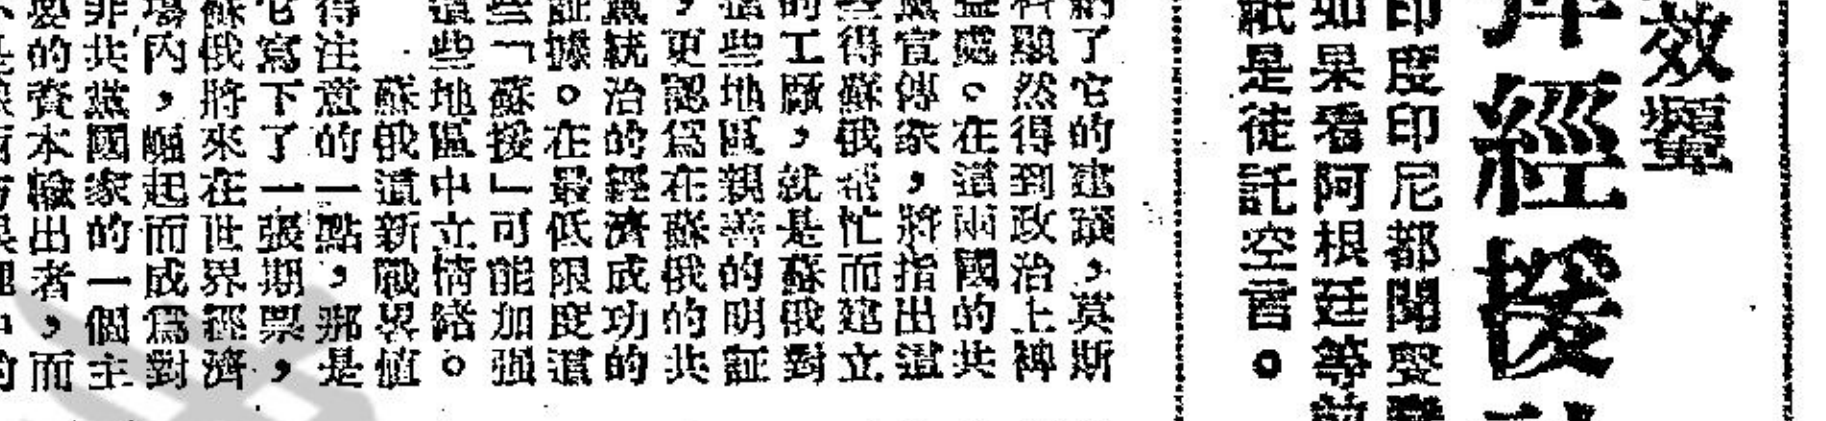 效顰
經援
印度印尼都聞聲
如果看阿根廷等
紙是徒託空言。
了它的建議，莫斯
科顯然得到政治上裨
益處。在這兩國的共
黨宣傳家，將指出這
些得蘇俄幫忙而建立
的工廠，就是蘇俄對
這些地區親善的明証
，更認爲在蘇俄的共
黨統治的經濟成功的
証據。在最低限度這
些「蘇援」可能加强
這些地區中立情緒。
蘇俄這新戰畧值
得注意的一點，那是
它寫下了一張期票，
蘇俄將來在世界經濟
場內，崛起而成爲對
非共黨國家的一個主
要的資本輸出者，而